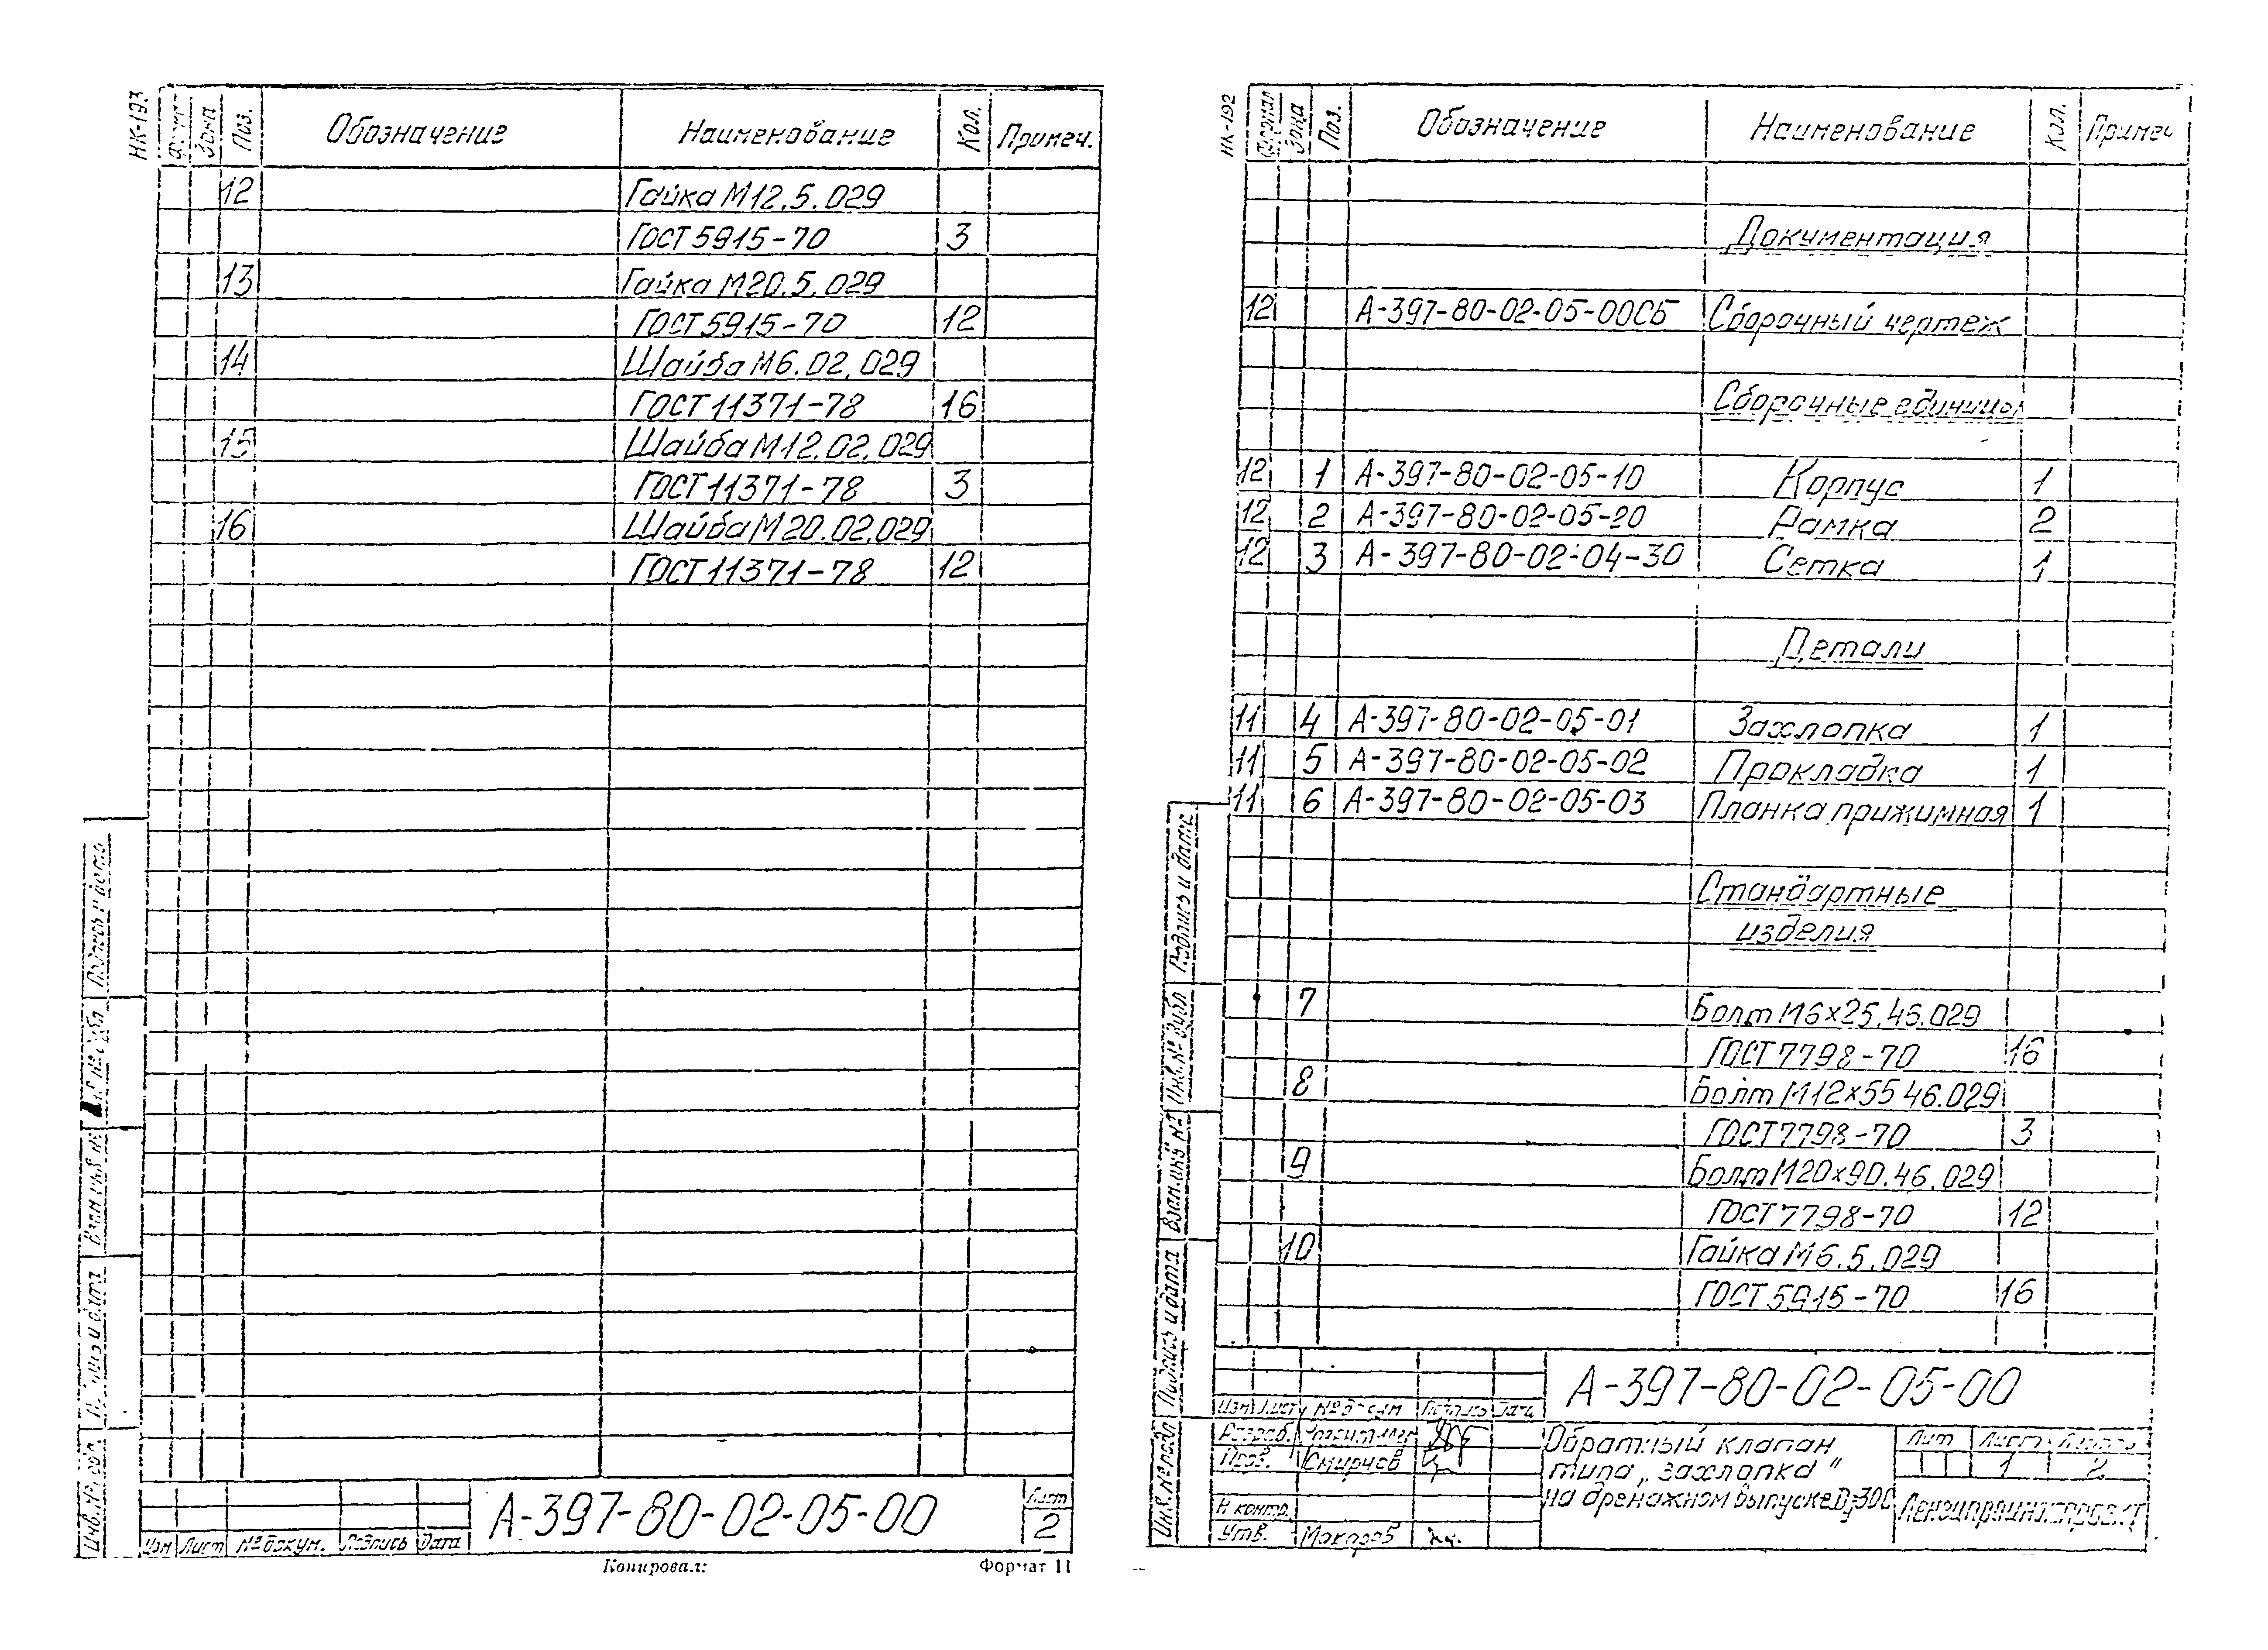 НК-193
Зона Поз. Обозначение Наименование Кол. Примеч.
12 Гайка М12.5.029
ГОСТ 5915-70 3
13 Гайка М20.5.029
ГОСТ 5915-70 12
14 Шайба М6.02.029
ГОСТ 11371-78 16
15 Шайба М12.02.029
ГОСТ 11371-78 3
16 Шайба М20.02.029
ГОСТ 11371-78 12
А-397-80-02-05-00
Лист
2
Изм Лист № докум. Подпись Дата
Копировал: Формат 11
НК-192
Формат Зона Поз. Обозначение Наименование Кол. Примеч
Документация
12 А-397-80-02-05-00СБ Сборочный чертеж
Сборочные единицы
12 1 А-397-80-02-05-10 Корпус 1
12 2 А-397-80-02-05-20 Рамка 2
12 3 А-397-80-02-04-30 Сетка 1
Детали
11 4 А-397-80-02-05-01 Захлопка 1
11 5 А-397-80-02-05-02 Прокладка 1
11 6 А-397-80-02-05-03 Планка прижимная 1
Стандартные
изделия
7 Болт М6×25.46.029
ГОСТ 7798-70 16
8 Болт М12×55 46.029
ГОСТ 7798-70 3
9 Болт М20×90.46.029
ГОСТ 7798-70 12
10 Гайка М6.5.029
ГОСТ 5915-70 16
Подпись и дата
Инв. № дубл
Взам. инв № 
Подпись и дата
Инв. № подл
А-397-80-02-05-00
Изм Лист № докум Подпись Дата
Разраб.
Пров. Смирнов
Н контр.
Утв. Макаров
Обратный клапан
типа „захлопка"
на дренажном выпуске Ду300
Лит Лист Листов
1 2